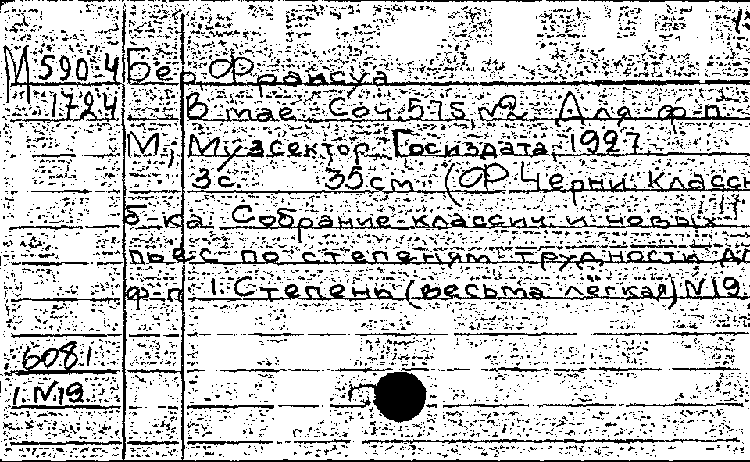 М 590-4 Бер Франсуа
1724 В мае. Соч. 575, №2. Для ф-п.
М., Музсектор Госиздата, 1927
3с. 35см. (Ф. Черни. Класси
б-ка. Собрание классич. и новых
пьес по степеням трудности дл
ф-п 1. Степень (весьма лёгкая) №19
6081
1. №19